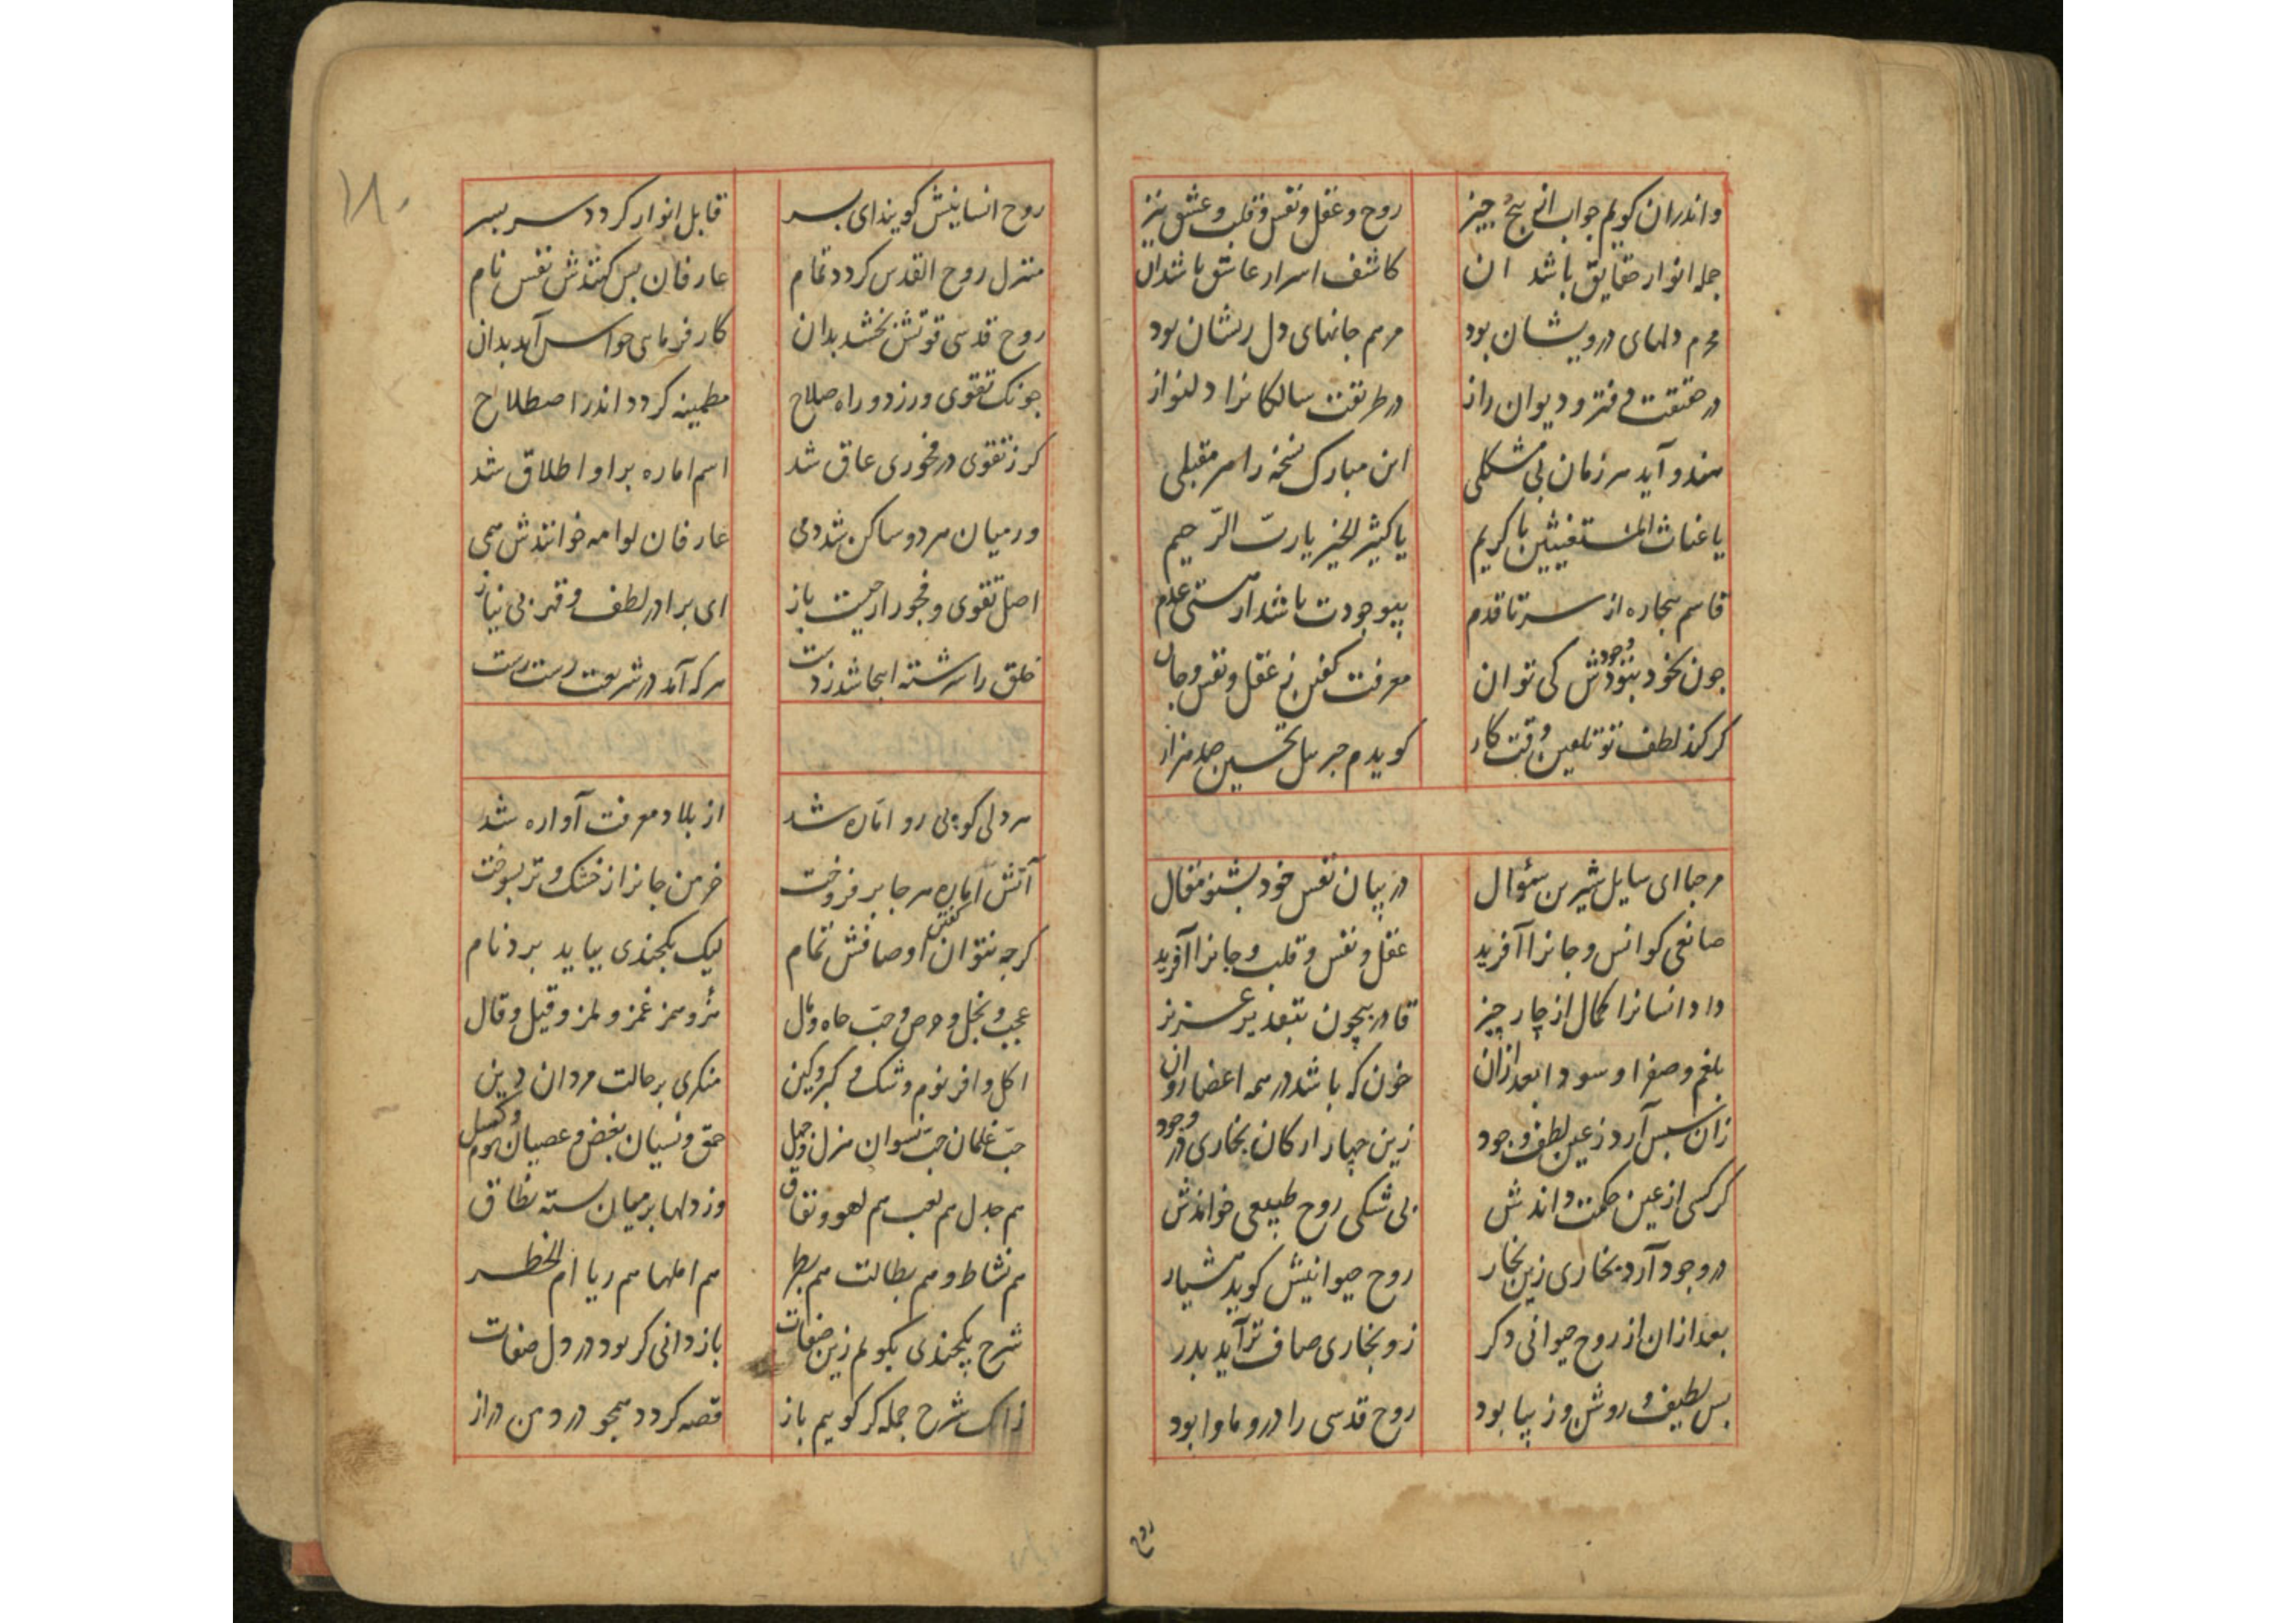 واندران کویم جواب این پنج چیز
روح و عقل و نفس و قلب و عشق نیز
جمله انوار حقایق باشد ان
کاشف اسرار عاشق باشد ان
محرم دلهای درویشان بود
مرهم جانهای دل ریشان بود
در حقیقت دفتر و دیوان راز
در طریقت سالکانرا دلنواز
این مبارک نسخه را هر مقبلی
یا غیاث المستغیثین یا کریم
یا کثیر الخیر یا رب الرحیم
قاسم بیچاره از سر تا قدم
بیوجودت باشد از هستی عدم
چون بخود نبود وجودش کی توان
معرفت کفتن ز عقل و نفس و جان
کر کند لطف تو تلقین وقت کار
کویدم جبریل تحسین صد هزار
مرحبا ای سایل شیرین سئوال
در بیان نفس خود بشنو مقال
صانعی کو انس و جانرا آفرید
عقل و نفس و قلب و جانرا آفرید
داد انسانرا کمال از چار چیز
قادر بیچون بتقدیر عزیز
بلغم و صفرا و سودا بعد ازان
خون که باشد در همه اعضا روان
زان سپس آرد ز عین لطف و جود
زین چهار ارکان بخاری در وجود
کر کسی از عین حکمت داندش
بی شکی روح طبیعی خواندش
در وجود آرد بخاری زین بخار
روح حیوانیش کوید هشیار
بعد ازان از روح حیوانی دکر
زو بخاری صاف تر آید بدر
بس لطیف و روشن و زیبا بود
روح قدسی را درو ماوا بود
روح
۱۸۰
روح انسانیش کویند ای پسر
قابل انوار کردد سر بسر
منزل روح القدس کردد تمام
عارفان پس کنندش نفس نام
روح قدسی قوتش بخشد بدان
کارفرمای حواس آید بدان
چونک تقوی ورزد و راه صلاح
مطمینه کردد اندر اصطلاح
کر ز تقوی در فجوری عاق شد
اسم اماره برا و اطلاق شد
ور میان هر دو ساکن شد دمی
عارفان لوامه خوانندش همی
اصل تقوی و فجور از چیست باز
ای برادر لطف و قهر بی نیاز
خلق را سر رشته اینجا شد ز دست
هر که آمد در شریعت رست رست
هر دلی کو پی رو اماره شد
از بلاد معرفت آواره شد
آتش اماره هر جا بر فروخت
خرمن جانرا ز خشک و تر بسوخت
کرچه نتوان کفتن اوصافش تمام
لیک یکچندی بباید برد نام
عجب و بخل و حرص و حب جاه و مال
هزو همز غمز و لمز و قیل و قال
اکل وافر نوم و شک و کبر و کین
منکری بر حالت مردان دین
حب غلمان حب نسوان هزل و جهل
حمق و نسیان بغض و عصیان
هم جدل هم لعب هم لهو و نفاق
وز دلها بر میان بسته نطاق
هم نشاط و هم بطالت هم بطر
هم املها هم ریا ام الخطر
شرح یکچندی بکویم زین صفات
باز دانی کر بود در دل صفات
زانک شرح جمله کر کویم باز
قصه کردد همچو درد من دراز